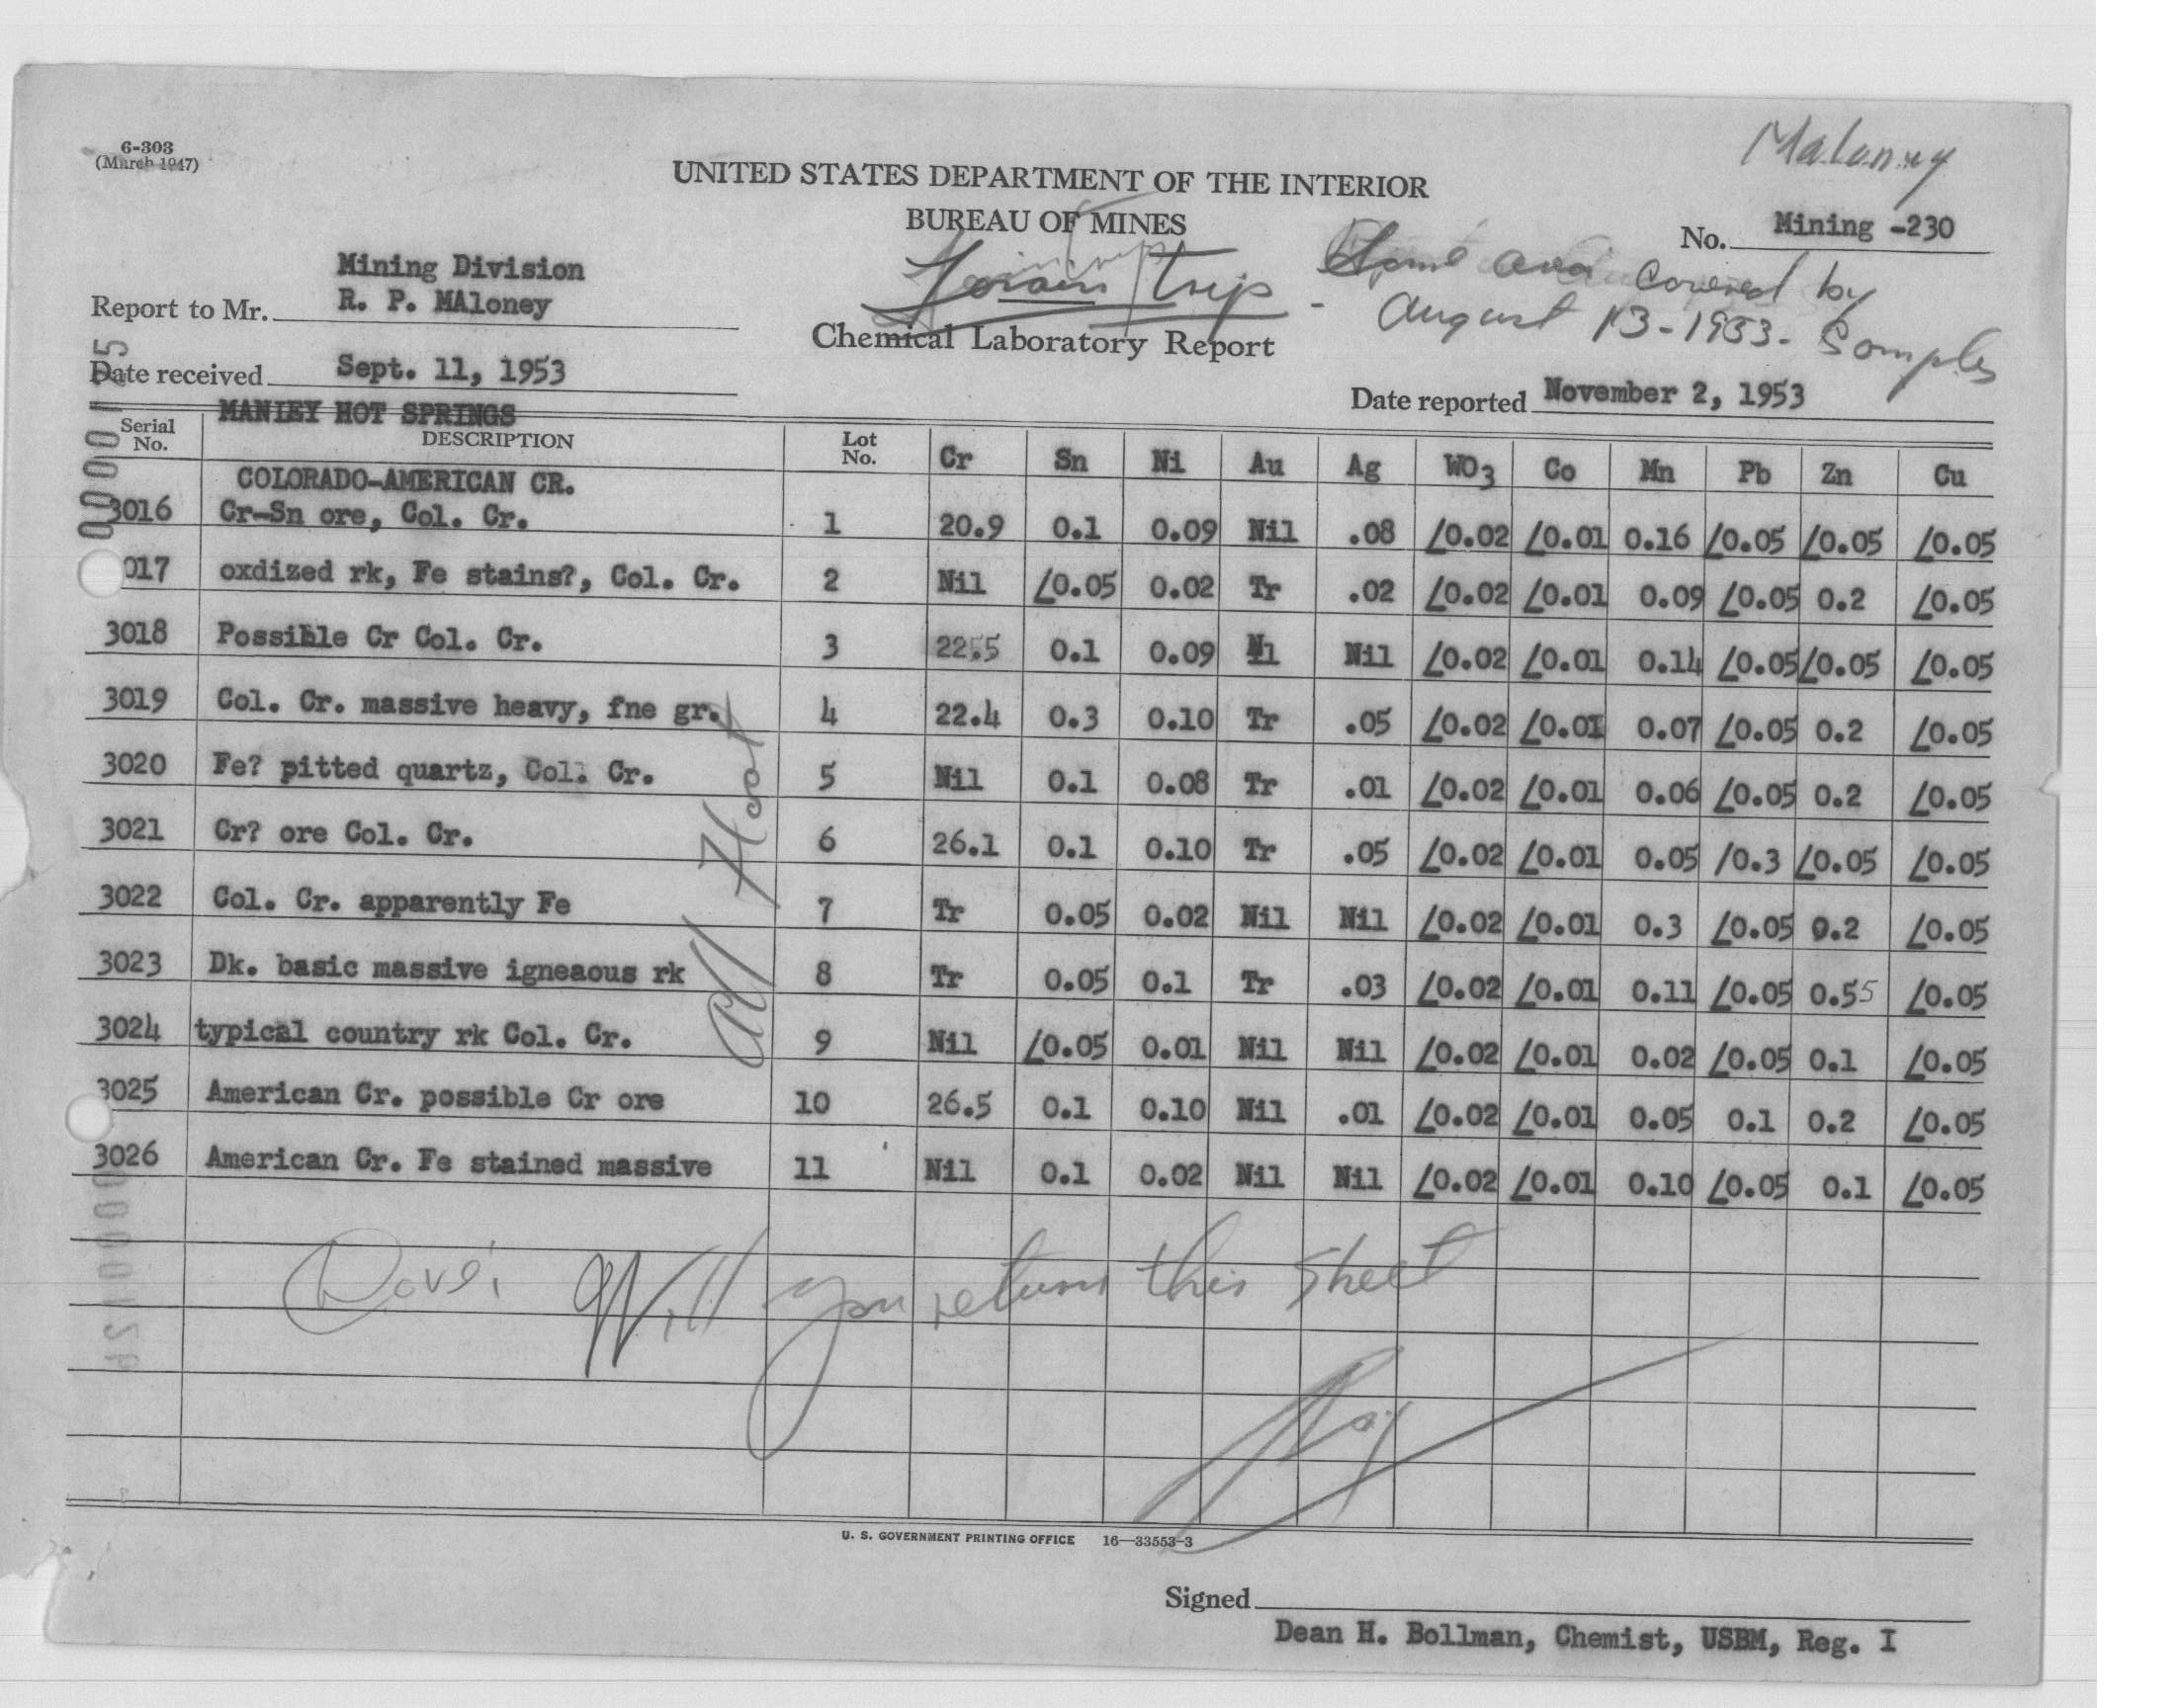 6-303
(March 1947)
Maloney
UNITED STATES DEPARTMENT OF THE INTERIOR
BUREAU OF MINES
No. Mining -230
Mining Division
Report to Mr. R. P. MAloney
trip - Same area covered by
August 13-1953. Samples
Chemical Laboratory Report
Date received Sept. 11, 1953
Date reported November 2, 1953
MANLEY HOT SPRINGS
Serial No. DESCRIPTION Lot No. Cr Sn Ni Au Ag WO3 Co Mn Pb Zn Cu
COLORADO-AMERICAN CR.
3016 Cr-Sn ore, Col. Cr. 1 20.9 0.1 0.09 Nil .08 /0.02 /0.01 0.16 /0.05 /0.05 /0.05
017 oxdized rk, Fe stains?, Col. Cr. 2 Nil /0.05 0.02 Tr .02 /0.02 /0.01 0.09 /0.05 0.2 /0.05
3018 Possible Cr Col. Cr. 3 22.5 0.1 0.09 Nil /0.02 /0.01 0.14 /0.05 /0.05 /0.05
3019 Col. Cr. massive heavy, fne gr. 4 22.4 0.3 0.10 Tr .05 /0.02 /0.01 0.07 /0.05 0.2 /0.05
3020 Fe? pitted quartz, Col. Cr. 5 Nil 0.1 0.08 Tr .01 /0.02 /0.01 0.06 /0.05 0.2 /0.05
3021 Cr? ore Col. Cr. 6 26.1 0.1 0.10 Tr .05 /0.02 /0.01 0.05 /0.3 /0.05 /0.05
3022 Col. Cr. apparently Fe 7 Tr 0.05 0.02 Nil Nil /0.02 /0.01 0.3 /0.05 0.2 /0.05
3023 Dk. basic massive igneaous rk 8 Tr 0.05 0.1 Tr .03 /0.02 /0.01 0.11 /0.05 0.55 /0.05
3024 typical country rk Col. Cr. 9 Nil /0.05 0.01 Nil Nil /0.02 /0.01 0.02 /0.05 0.1 /0.05
3025 American Cr. possible Cr ore 10 26.5 0.1 0.10 Nil .01 /0.02 /0.01 0.05 0.1 0.2 /0.05
3026 American Cr. Fe stained massive 11 Nil 0.1 0.02 Nil Nil /0.02 /0.01 0.10 /0.05 0.1 /0.05
All Float
Dave, Will you return this sheet
U. S. GOVERNMENT PRINTING OFFICE 16—33553-3
Signed
Dean H. Bollman, Chemist, USBM, Reg. I